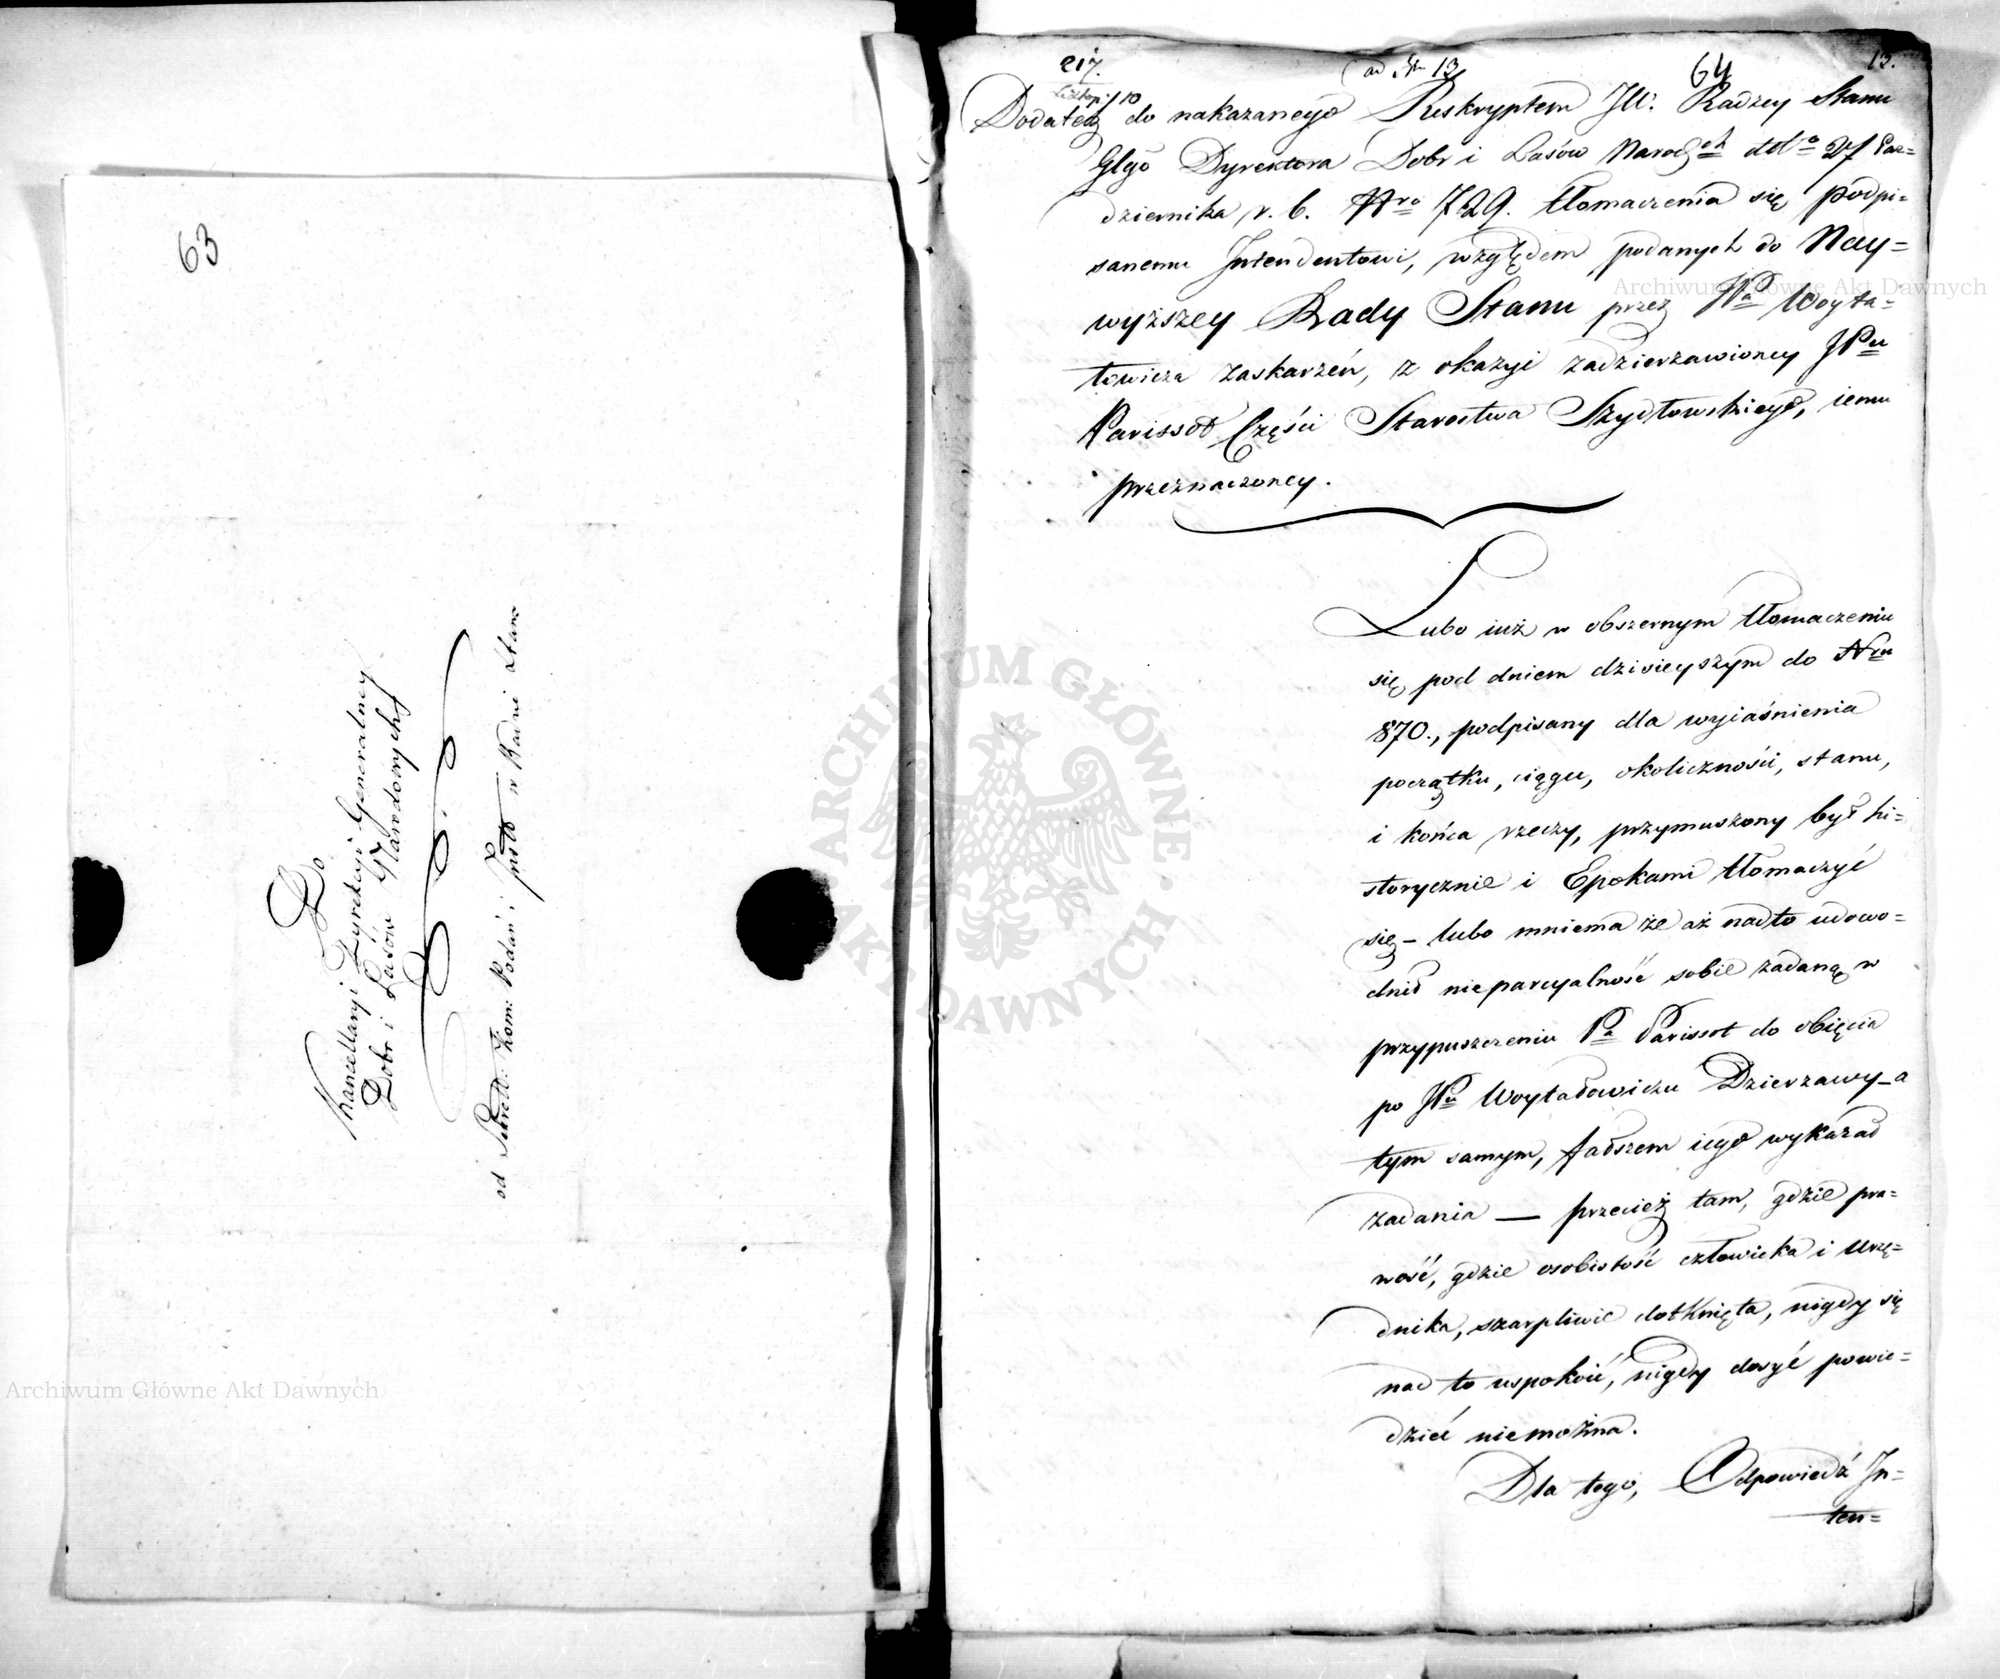 63
Do
Kancellaryi Dyrekcyi Generalney
Dobr i Lasów Narodowych
od Sekret: Kom: Podań i Prośb w Radzie Stanu
217.
Listop: 10
ad N 13
64
13.
Dodatek do nakazanego Reskryptem JW. Radzcy Stanu
Glgo Dyrektora Dobr i Lasów Narodch dto 27 Paz=
dziernika r. b. Nro 729. tłomaczenia się podpi=
sanemu Intendentowi, względem podanych do Nay=
wyższey Rady Stanu przez JPa Woyta=
towicza zaskarzeń, z okazyi zadzierzawioney JPu
Parissot Części Starostwa Szydłowskiego, iemu
przeznaczoney.
Lubo iuż w obszernym tłomaczeniu
się pod dniem dzisieyszym do Nru
870., podpisany dla wyiaśnienia
początku, ciągu, okoliczności, stanu,
i końca rzeczy, przymuszony był hi=
storycznie i Epokami tłomaczyć
się – lubo mniema że aż nadto udowo=
dnił nieparcyalność sobie zadaną w
przypuszczeniu Pa Parissot do obięcia
po JPu Woytatowiczu Dzierzawy – a
tym samym, fałszem iego wykazał
zadania — przecież tam, gdzie pra=
wość, gdzie osobistość człowieka i Urzę=
dnika, szarpliwie dotknięta, nigdy się
nad to uspokoić, nigdy dosyć powie=
dzieć niemożna.
Dla tego, Odpowiedź In=
ten=
Archiwum Główne Akt Dawnych
Archiwum Główne Akt Dawnych
ARCHIWUM GŁÓWNE AKT DAWNYCH